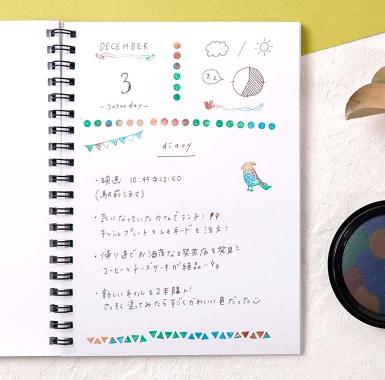 DECEMBER
3
-saturday-
zz
diary
・映画 10:45〜12:50
(駅前シネマ)
・気になっていたカフェでランチ!
キッシュプレートとレモネードを注文!
・帰り道でお洒落な喫茶店を発見
コーヒーとチーズケーキが絶品…
・新しいネイルを2本購入!
さっそく塗ってみたらすごくかわいい色だった